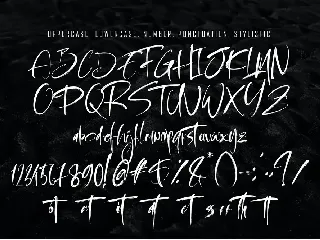 UPPERCASE, LOWERCASE, NUMBER, PUNCTUATION, STYLISTIC
ABCDEFGHIJKLMN
OPQRSTUVWXYZ
abcdefghijklmnopqrstuvwxyz
1234567890!@#$%&*()-:;,.?/